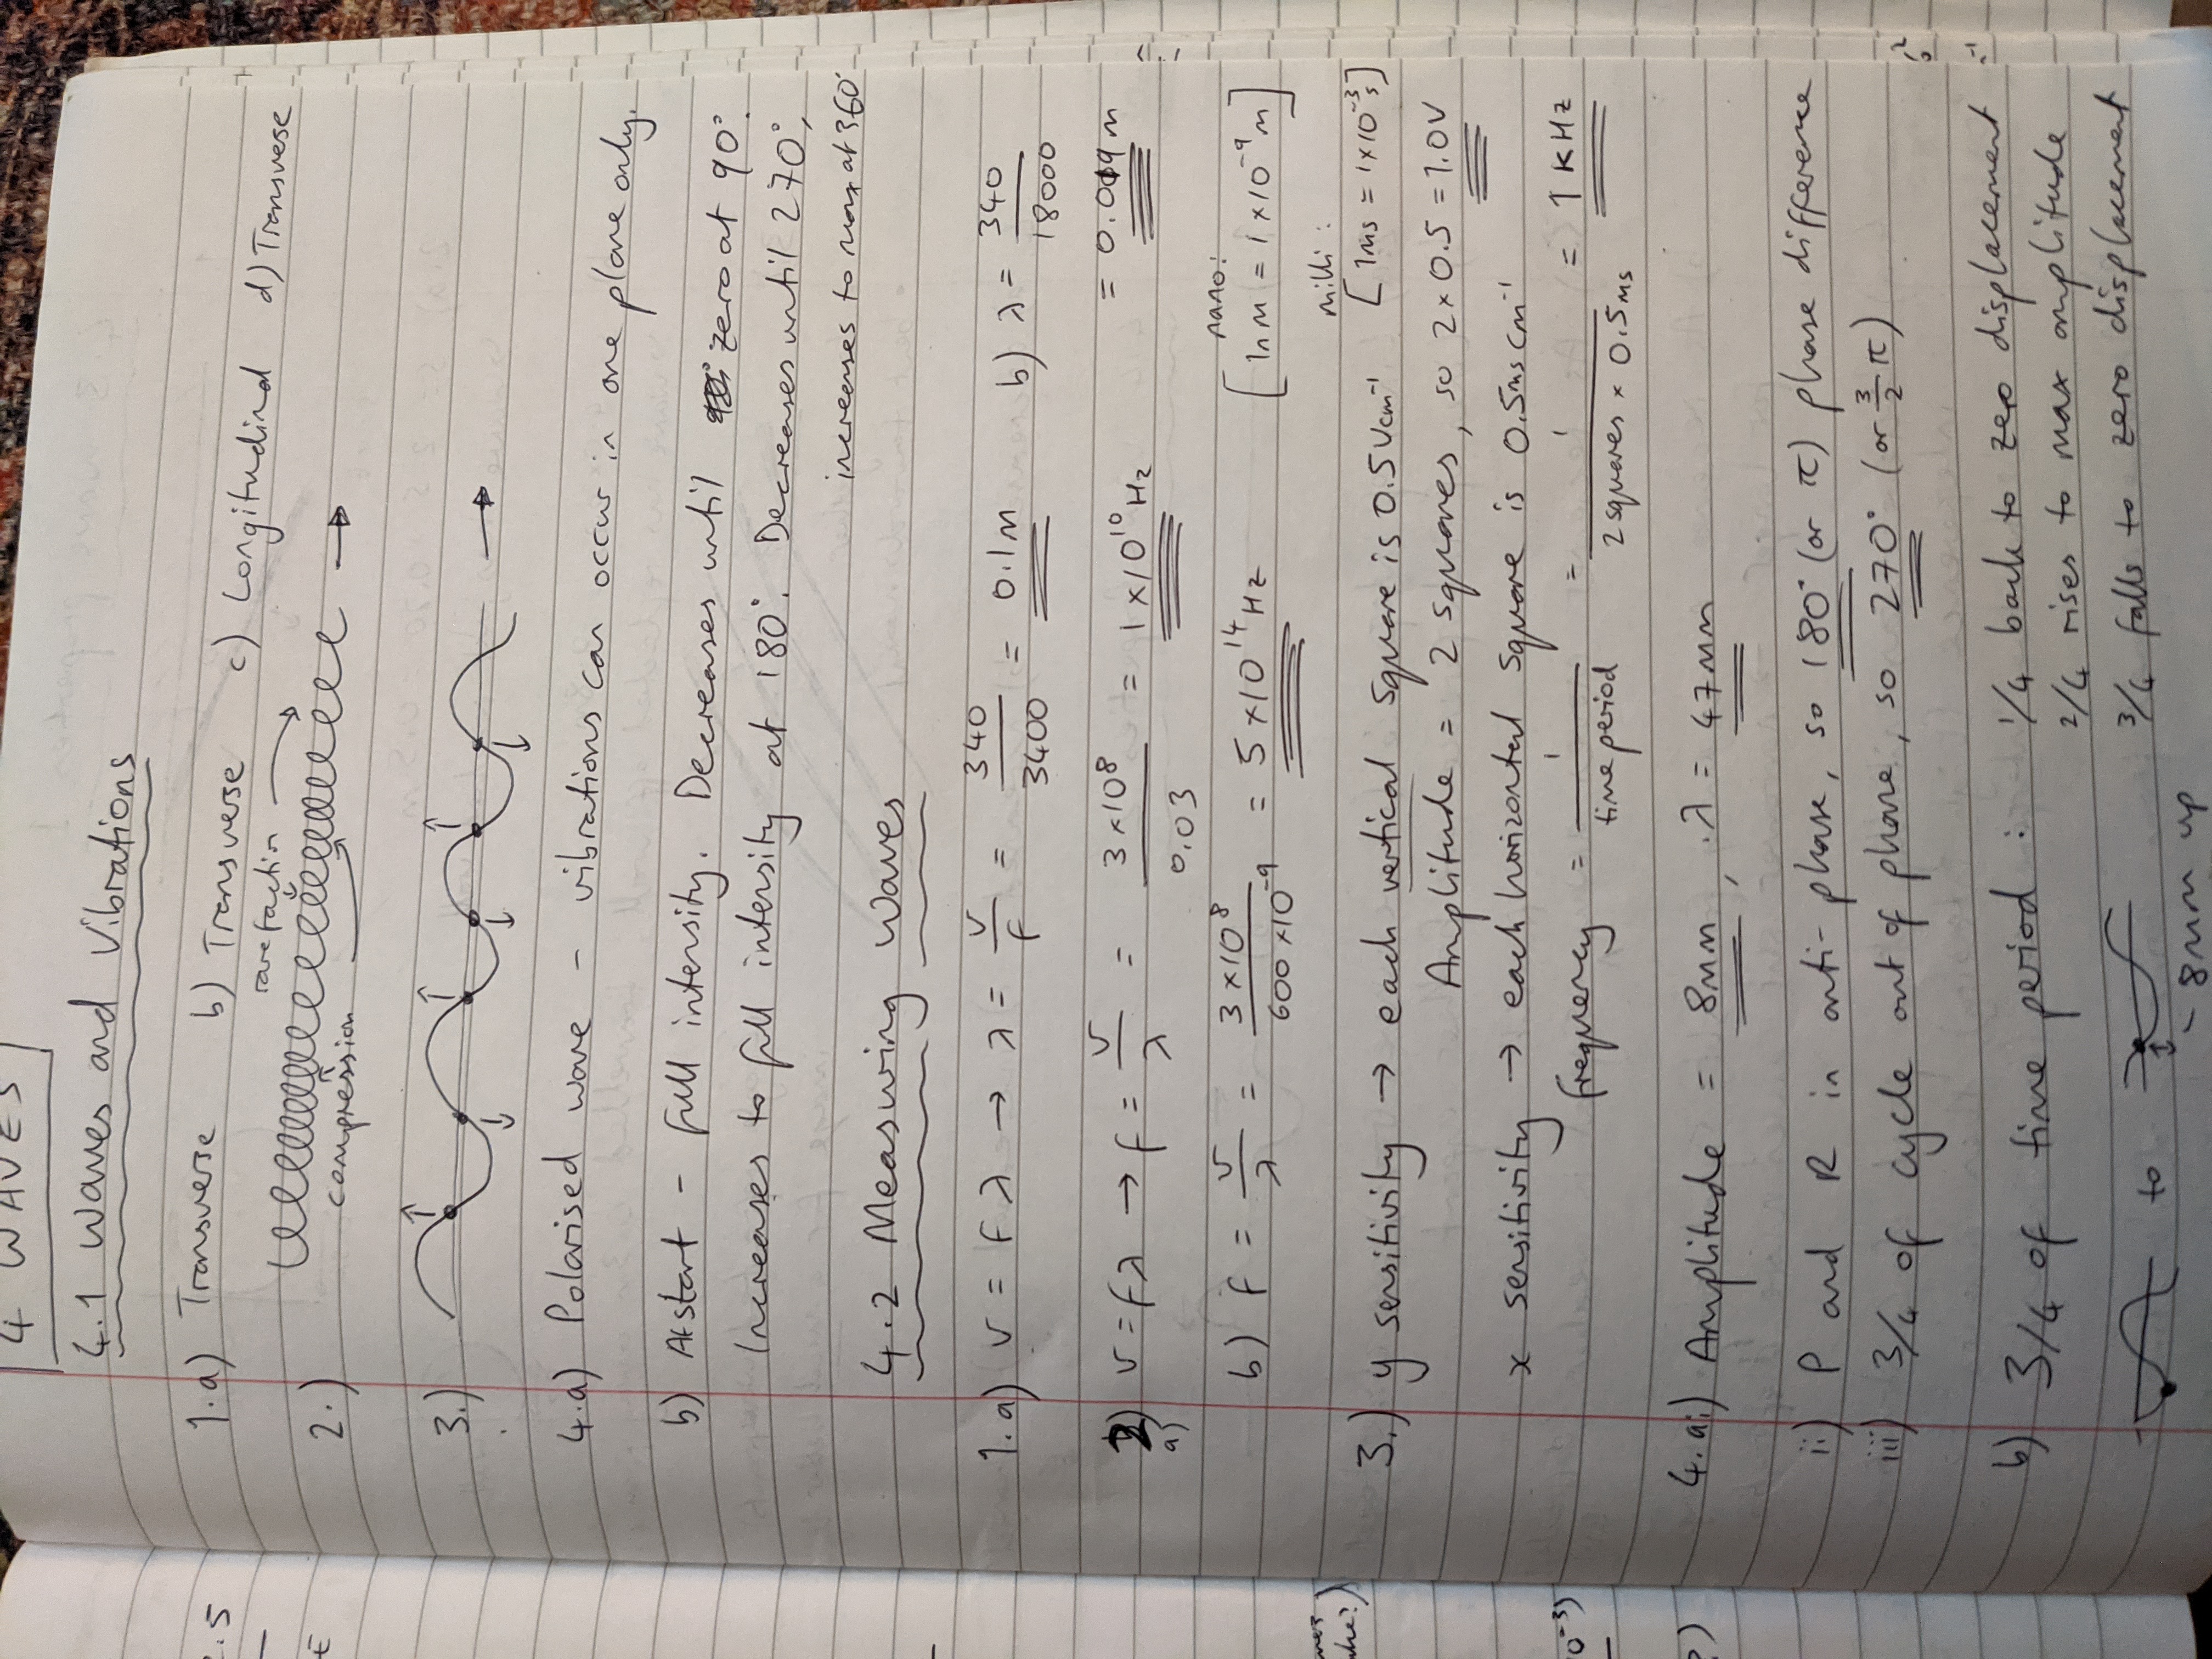 4 WAVES
4.1 Waves and Vibrations
1.a) Transverse b) Transverse c) Longitudinal d) Transverse
2.) rarefaction
compression
3.)
4.a) Polarised wave - vibrations can occur in one plane only.
b) At start - full intensity. Decreases until zero at 90°.
Increases to full intensity at 180°. Decreases until 270°,
increases to max at 360°
4.2 Measuring Waves
1.a) v = fλ → λ = v/f = 340/3400 = 0.1m b) λ = 340/18000
= 0.019m
2) a) v = fλ → f = v/λ = 3×10⁸/0.03 = 1×10¹⁰Hz
b) f = v/λ = 3×10⁸/600×10⁻⁹ = 5×10¹⁴Hz nano: [1nm = 1×10⁻⁹m]
milli:
3.) y sensitivity → each vertical square is 0.5Vcm⁻¹ [1ms = 1×10⁻³s]
Amplitude = 2 squares, so 2×0.5 = 1.0V
x sensitivity → each horizontal square is 0.5ms cm⁻¹
frequency = 1/time period = 1/2 squares × 0.5ms = 1KHz
4.ai) Amplitude = 8mm, λ = 47mm
ii) P and R in anti-phase, so 180° (or π) phase difference
iii) 3/4 of cycle out of phase, so 270° (or 3/2 π)
b) 3/4 of time period: 1/4 back to zero displacement
2/4 rises to max amplitude
3/4 falls to zero displacement
to
- 8mm up
2.5
10⁻³)